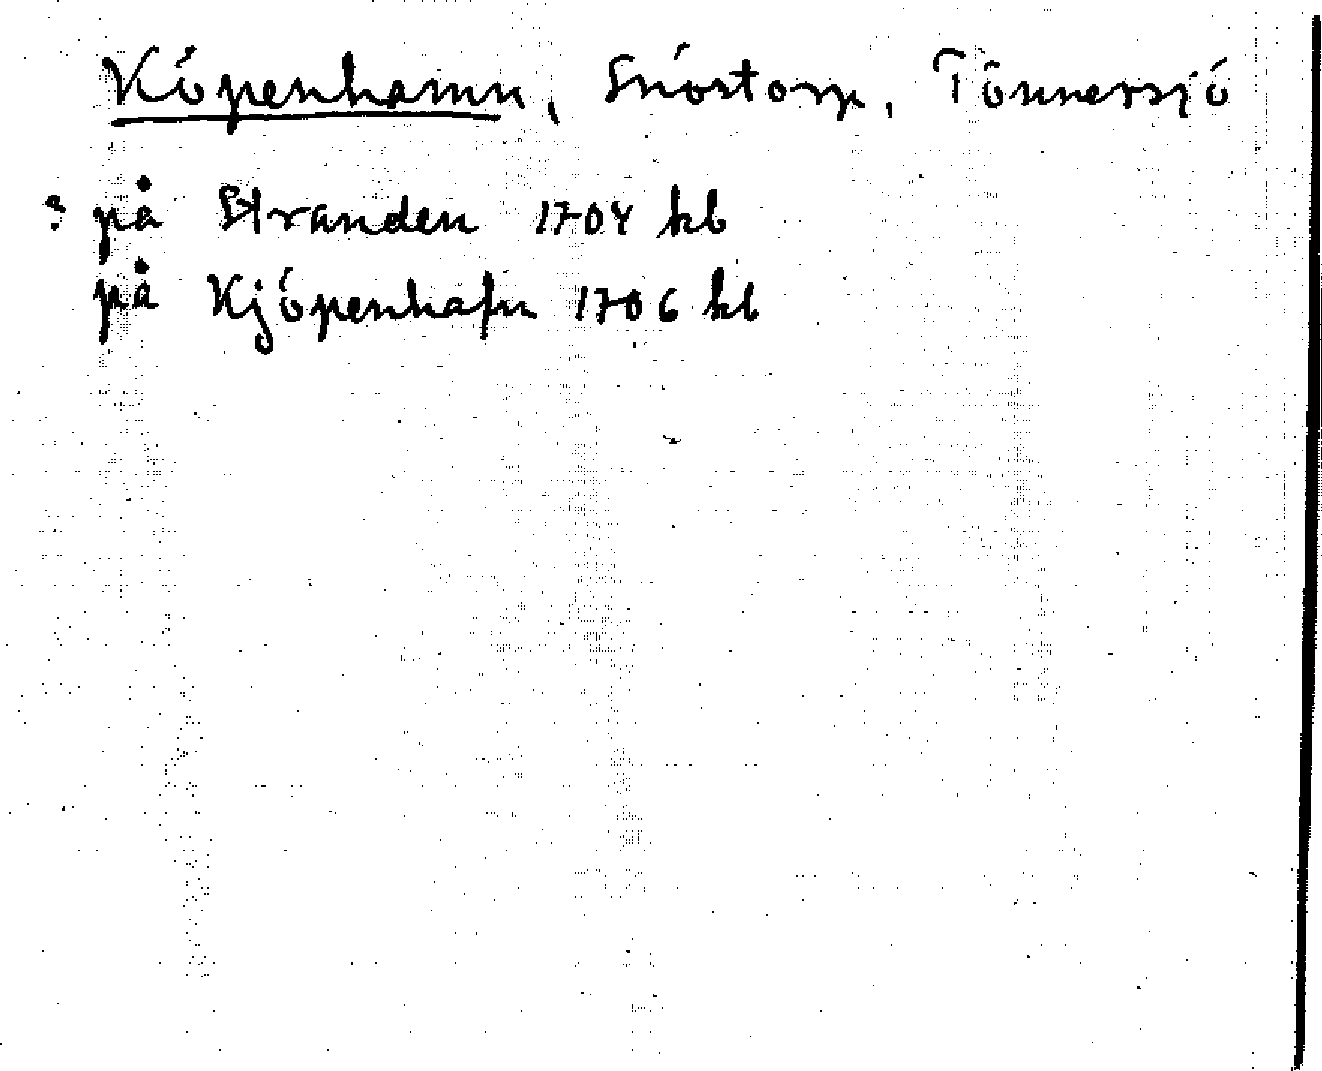 Köpenhamn, Snöstorp, Tönnersjö
? på Stranden 1704 kb
på Kjöpenhafn 1706 kb